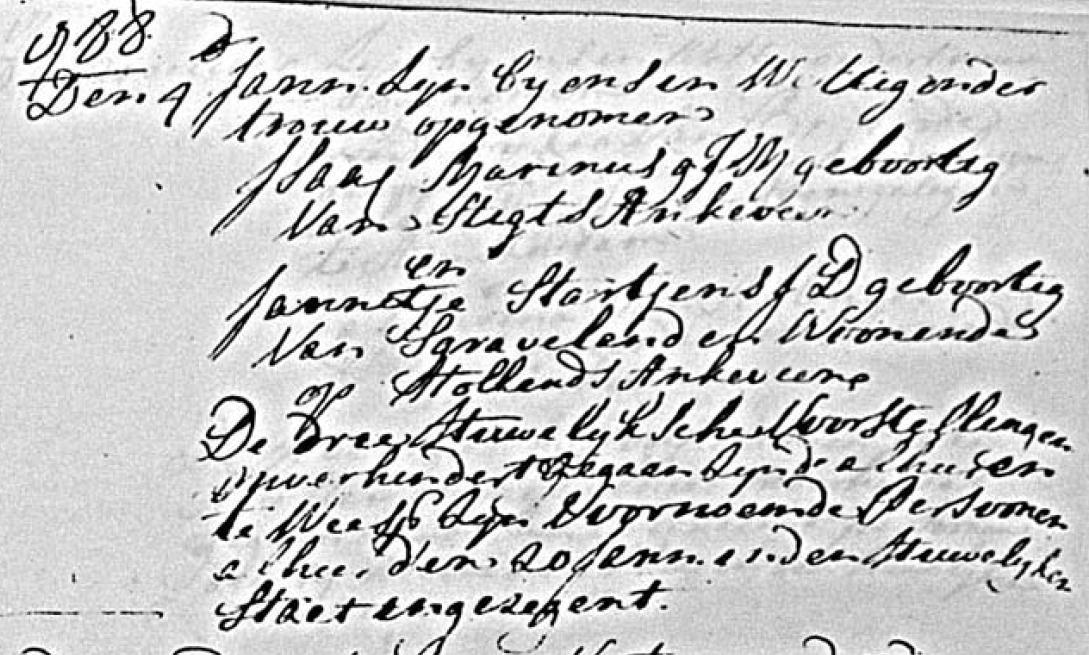 1788
Den 4 Jann. Zyn by ons en W: Uig onder
trouw opgenomen
Isaag Marinus J M geboortig
Van Stigts Ankeveen
en
Jannetje Startjens J D geboortig
Van Sgraveland en Woonende
op Hollands Ankeveen
De Dree Huwelyksche Voorstellingen
onverhindert gegaan Zynde alhier en
te Weesp Zyn Voornoemde Persoonen
alhier den 20 Jann. in den Huwelyken
Staet ingezegent.